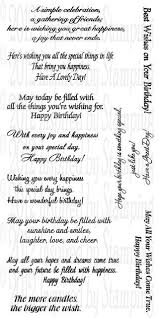 A simple celebration,
a gathering of friends;
here is wishing you great happiness,
a joy that never ends.
Here's wishing you all the special things in life
That bring you happiness.
Have A Lovely Day!
May today be filled with
all the things you're wishing for.
Happy Birthday!
With every joy and happiness
on your special day.
Happy Birthday!
Wishing you every happiness
this special day brings.
Have a wonderful Birthday!
May your birthday be filled with
sunshine and smiles,
laughter, love, and cheer.
May all your hopes and dreams come true
and your future be filled with happiness.
Happy Birthday!
The more candles,
the bigger the wish.
Best Wishes on Your Birthday!
May All Your Wishes Come True.
Happy Birthday!